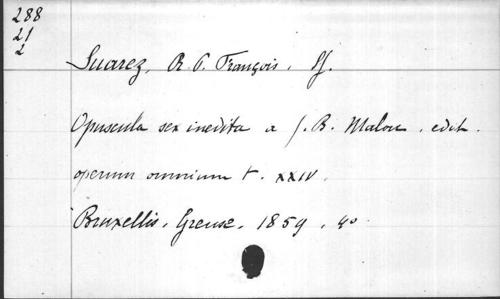 288
21
2
Suarez, R. P. François. SJ.
Opuscula sex inedita a J. B. Malou. edit.
operum omnium t. XXIV.
Bruxellis. Greuse. 1859. 4º